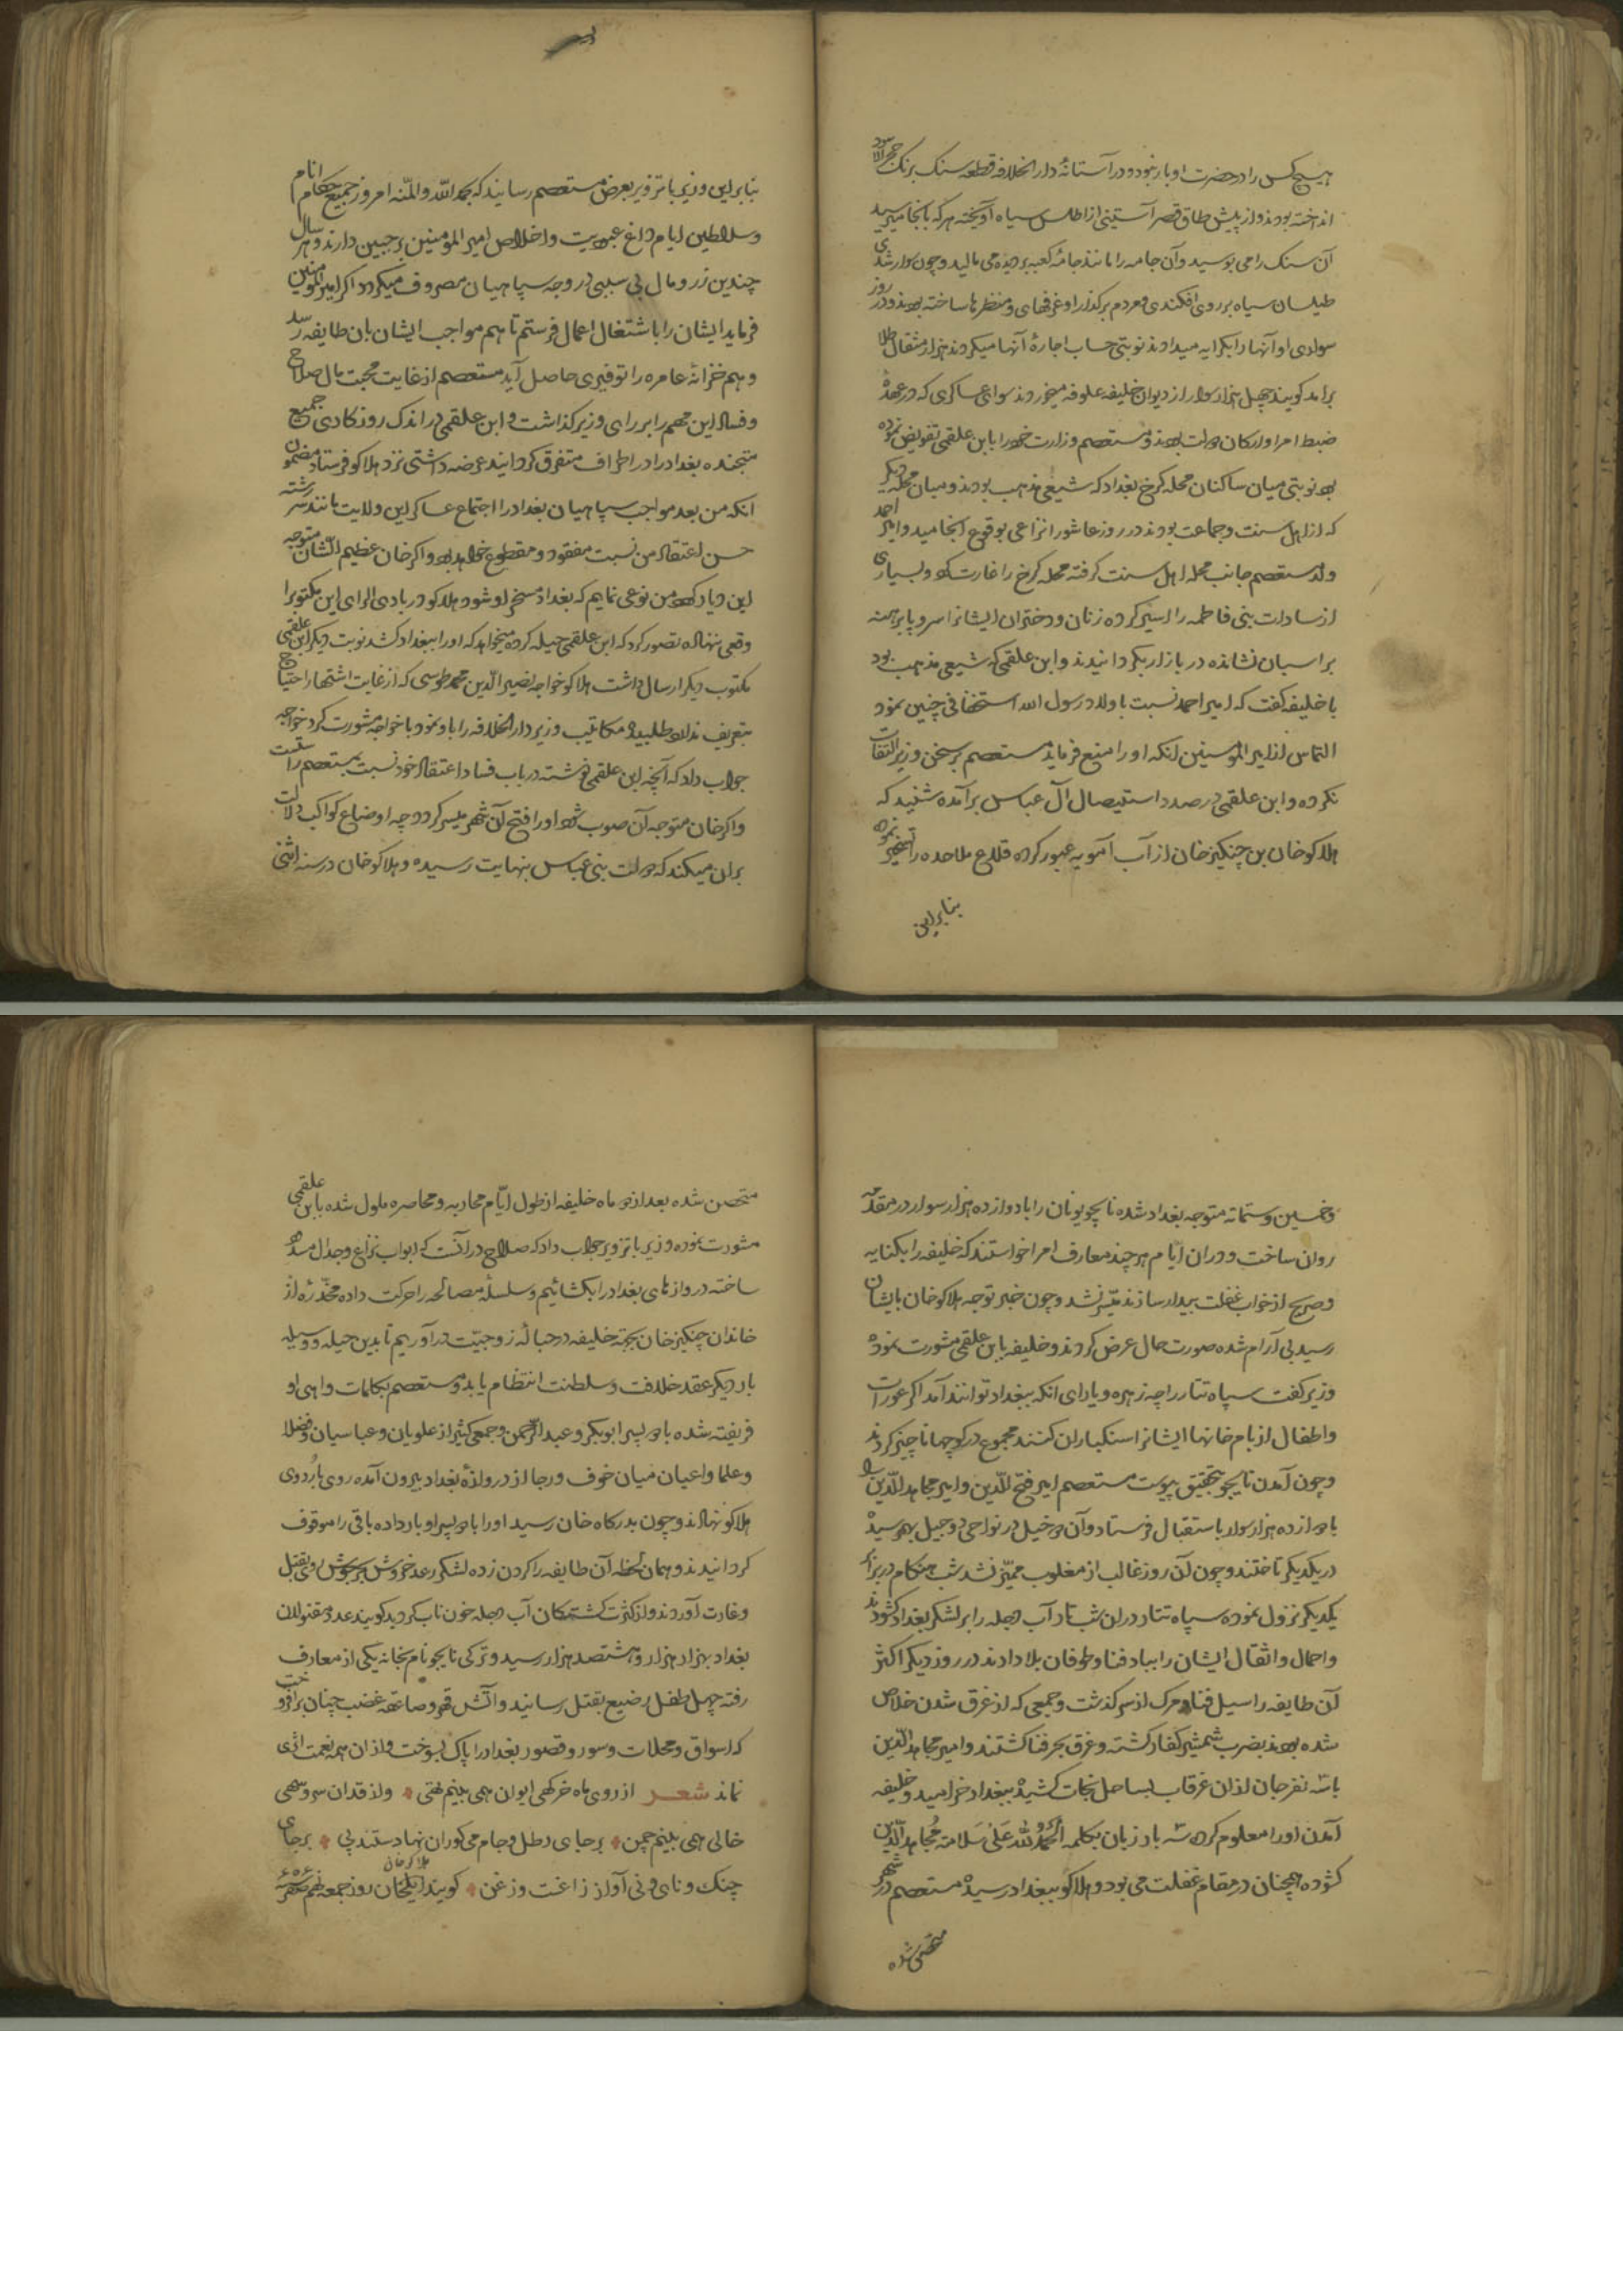 هیچکس را در حضرت او بار نبود و در آستانهٔ دار الخلافه قطعه سنک برنک حجر الاسود
انداخته بودند و از پیش طاق قصر آستینی از اطلس سیاه آویخته هر که بانجا میرسید
آن سنک را می بوسید و آن جامه را مانند جامهٔ کعبه بر دیده می مالید و چون سوار شدی
طیلسان سیاه بر روی افکندی و مردم بر کذار او غرفهای و منظرها ساخته بودند و در روز
سواری او آنها را بکرایه میدادند نوبتی حساب اجارهٔ آنها میکردند هزار مثقال طلا
برامد کویند چهل هزار سوار از دیوان خلیفه علوفه میخوردند سوای عساکری که در عهدهٔ
ضبط امرا و ارکان دولت بودند و مستعصم وزارت خود را بابن علقمی تفویض نموده
بود نوبتی میان ساکنان محله کرخ بغداد که شیعی مذهب بودند و میان محله دیکر
که از اهل سنت و جماعت بودند در روز عاشورا نزاعی بوقوع انجامید و امیر احمد
ولد مستعصم جانب محله اهل سنت کرفته محله کرخ را غارت کرد و بسیاری
از سادات بنی فاطمه را اسیر کرده زنان و دختران ایشانرا سر و پا برهنه
بر اسبان نشانده در بازار بکردانیدند و ابن علقمی که شیعی مذهب بود
با خلیفه کفت که امیر احمد نسبت باولاد رسول الله استخفافی چنین نمود
التماس از امیر المومنین انکه او را منع فرماید مستعصم بر سخن وزیر التفات
نکرده و ابن علقمی در صدد استیصال آل عباس برآمده شنید که
هلاکو خان بن چنکیز خان از آب آمویه عبور کرده قلاع ملاحده را تسخیر نموده
بنابراین
بنابراین وزیر با تزویر بعرض مستعصم رسانید که بحمد الله والمنه امروز جمیع حکام انام
و سلاطین ایام داغ عبودیت و اخلاص امیر المومنین بر جبین دارند و هر سال
چندین زر و مال بی سببی در وجه سپاهیان مصروف میکردد اکر امیر المومنین
فرماید ایشان را باشتغال اعمال فرستم تا هم مواجب ایشان بان طایفه رسد
و هم خزانهٔ عامره را توفیری حاصل آید مستعصم از غایت محبت مال صلاح
و فساد این مهم را بر رای وزیر کذاشت و ابن علقمی در اندک روزکاری جمیع
متجنده بغداد را در اطراف متفرق کردانید عرضه داشتی نزد هلاکو فرستاد مضمون
انکه من بعد مواجب سپاهیان بغداد را اجتماع عساکر این ولایت مانند سر رشته
حسن اعتقاد من نسبت مفقود و مقطوع خواهد بود و اکر خان عظیم الشان متوجه
این دیار کردد من نوعی نمایم که بغداد مسخر او شود هلاکو در بادی الرای این مکتوبرا
وقعی ننهاده تصور کرد که ابن علقمی حیله کرده میخواهد که او را ببغداد کشد نوبت دیکر ابن علقمی
مکتوب دیکر ارسال داشت هلاکو خواجه نصیر الدین محمد طوسی که از غایت اشتهار احتیاج
بتعریف ندارد طلبیده مکاتیب وزیر دار الخلافه را باو نمود با خواجه مشورت کرد خواجه
جواب داد که آنچه ابن علقمی نوشته در باب فساد اعتقاد خود نسبت بمستعصم راستست
و اکر خان متوجه آن صوب شود او را فتح آن شهر میسر کردد چه اوضاع کواکب دلالت
بران میکند که دولت بنی عباس بنهایت رسیده و هلاکو خان در سنه اثنی
و خمسین و ستمائه متوجه بغداد شده نایجو نویان را با دوازده هزار سوار در مقدمه
روان ساخت و دران ایام هر چند معارف امرا خواستند که خلیفه را بکنایه
و صریح از خواب غفلت بیدار سازند میسر نشد و چون خبر توجه هلاکو خان بایشان
رسید بی آرام شده صورت حال عرض کردند و خلیفه بابن علقمی مشورت نموده
وزیر کفت سپاه تتار را چه زهره و یارای انکه ببغداد توانند آمد اکر عورات
و اطفال از بام خانها ایشانرا سنکباران کنند مجموع در کوچها ناچیز کردند
و چون آمدن نایجو بتحقیق پیوست مستعصم امیر فتح الدین و امیر مجاهد الدین را
با دوازده هزار سوار باستقبال فرستاد و آن دو خیل در نواحی دوجیل بهم رسیده
در یکدیکر تاختند و چون آن روز غالب از مغلوب ممیز نشد شب هنکام در برابر
یکدیکر نزول نموده سپاه تتار دران شب تار آب دجله را بر لشکر بغداد کشودند
و احمال و اثقال ایشان را بباد فنا و طوفان بلا دادند در روز دیکر اکثر
آن طایفه را سیل فنا و مرک از سر کذشت و جمعی که از غرق شدن خلاص
شده بودند بضرب شمشیر کفار کشته و غرق بحر فنا کشتند و امیر مجاهد الدین
با سه نفر جان ازان غرقاب بساحل نجات کشیده ببغداد خرامید و خلیفه
آمدن او را معلوم کرده سه بار زبان بکلمه الحمد لله علی سلامة مجاهد الدین
کشوده همچنان در مقام غفلت می بود و هلاکو ببغداد رسیده مستعصم در شهر
متحصن شده
متحصن شده بعد از دو ماه خلیفه از طول ایام محاربه و محاصره ملول شده بابن علقمی
مشورت نموده وزیر با تزویر جواب داد که صلاح در آنست که ابواب نزاع و جدال مسدود
ساخته دروازهای بغداد را بکشائیم و سلسلهٔ مصالحه را حرکت داده مخدرهٔ از
خاندان چنکیز خان بجهة خلیفه در حبالهٔ زوجیت در آوریم تا بدین حیله و وسیله
بار دیکر عقد خلافت و سلطنت انتظام یابد و مستعصم بکلمات واهی او
فریفته شده با دو پسر ابوبکر و عبد الرحمن و جمعی کثیر از علویان و عباسیان و فضلا
و علما و اعیان میان خوف و رجا از دروازهٔ بغداد بیرون آمده روی باردوی
هلاکو نهادند و چون بدرکاه خان رسید او را با دو پسر او بار داده باقی را موقوف
کردانیدند و همان لحظه آن طایفه را کردن زده لشکر رعد خروش برجوش روی بقتل
و غارت آوردند و از کثرت کشتکان آب دجله خون ناب کردید کویند عدد مقتولان
بغداد بهزار هزار و هشتصد هزار رسید و ترکی نایجو نام بخانه یکی از معارف
رفته چهل طفل رضیع بقتل رسانید و آتش قهر و صاعقه غضب چنان برافروخت
که اسواق و محلات و سور و قصور بغداد را پاک بسوخت و ازان همه نعمت اثری
نماند شعر از روی ماه خرکهی ایوان همی بینم تهی ولز قدان سرو سهی
خالی همی بینم چمن بر جای رطل و جام می کوران نهادستند پی بر جای
چنک و نای و نی آواز زاغست و زغن کویند ایلخان روز جمعه نهم صفر سنه ۶۵۶
هلاکو خان